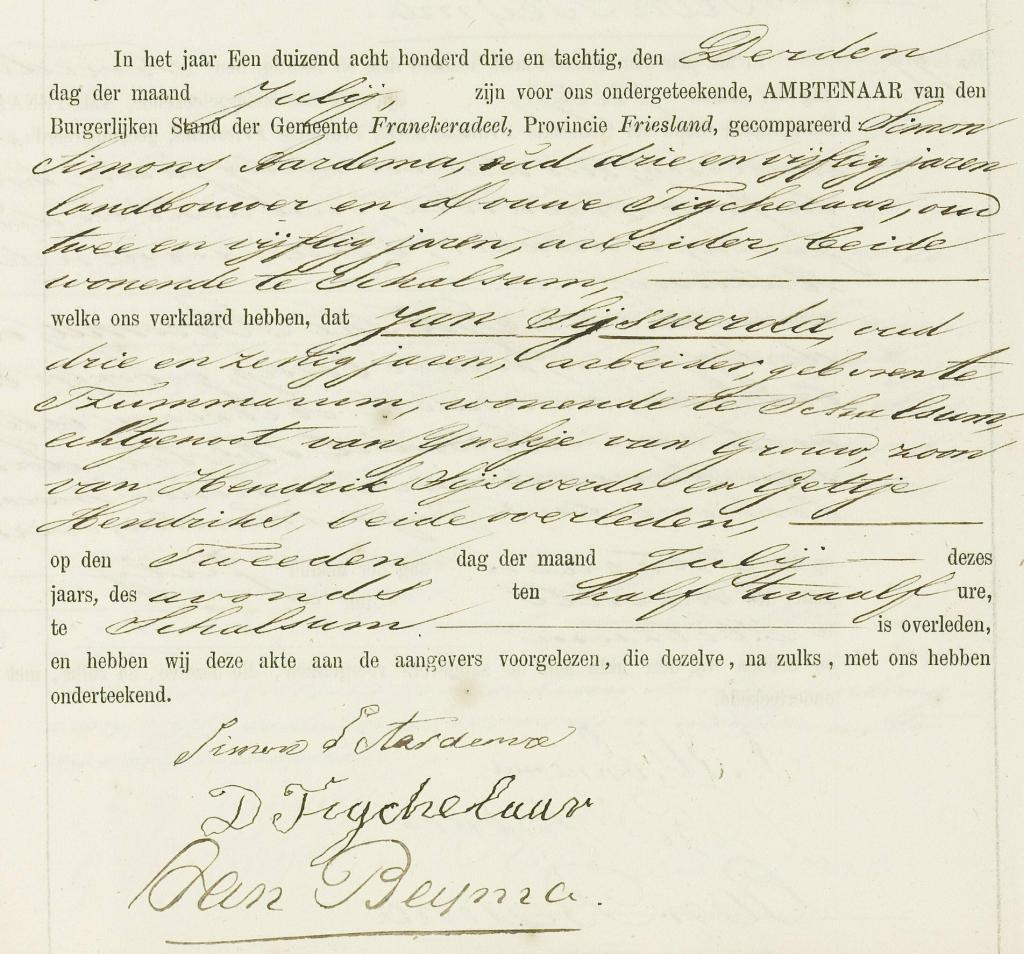 In het jaar Een duizend acht honderd drie en tachtig, den Derden
dag der maand Julij, zijn voor ons ondergeteekende, AMBTENAAR van den
Burgerlijken Stand der Gemeente Franekeradeel, Provincie Friesland, gecompareerd Simon
Simons Aardema, oud drie en vijftig jaren
landbouwer en Douwe Tigchelaar, oud
twee en vijftig jaren, arbeider, beide
wonende te Schalsum,
welke ons verklaard hebben, dat Jan Sijswerda, oud
drie en zestig jaren, arbeider, geboren te
Tzummarum, wonende te Schalsum,
echtgenoot van Ynskje van Grouw, zoon
van Hendrik Sijswerda en Gettje
Hendriks, beide overleden,
op den Tweeden dag der maand Julij dezes
jaars, des avonds ten half twaalf ure,
te Schalsum. is overleden,
en hebben wij deze akte aan de aangevers voorgelezen, die dezelve, na zulks, met ons hebben
onderteekend.
Simon S Aardema
D Tigchelaar
Van Beyma.